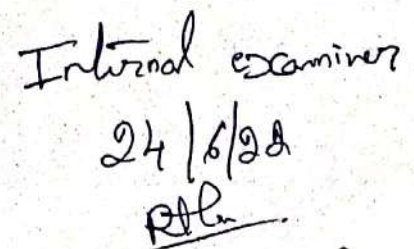 Internal examiner
24/6/22